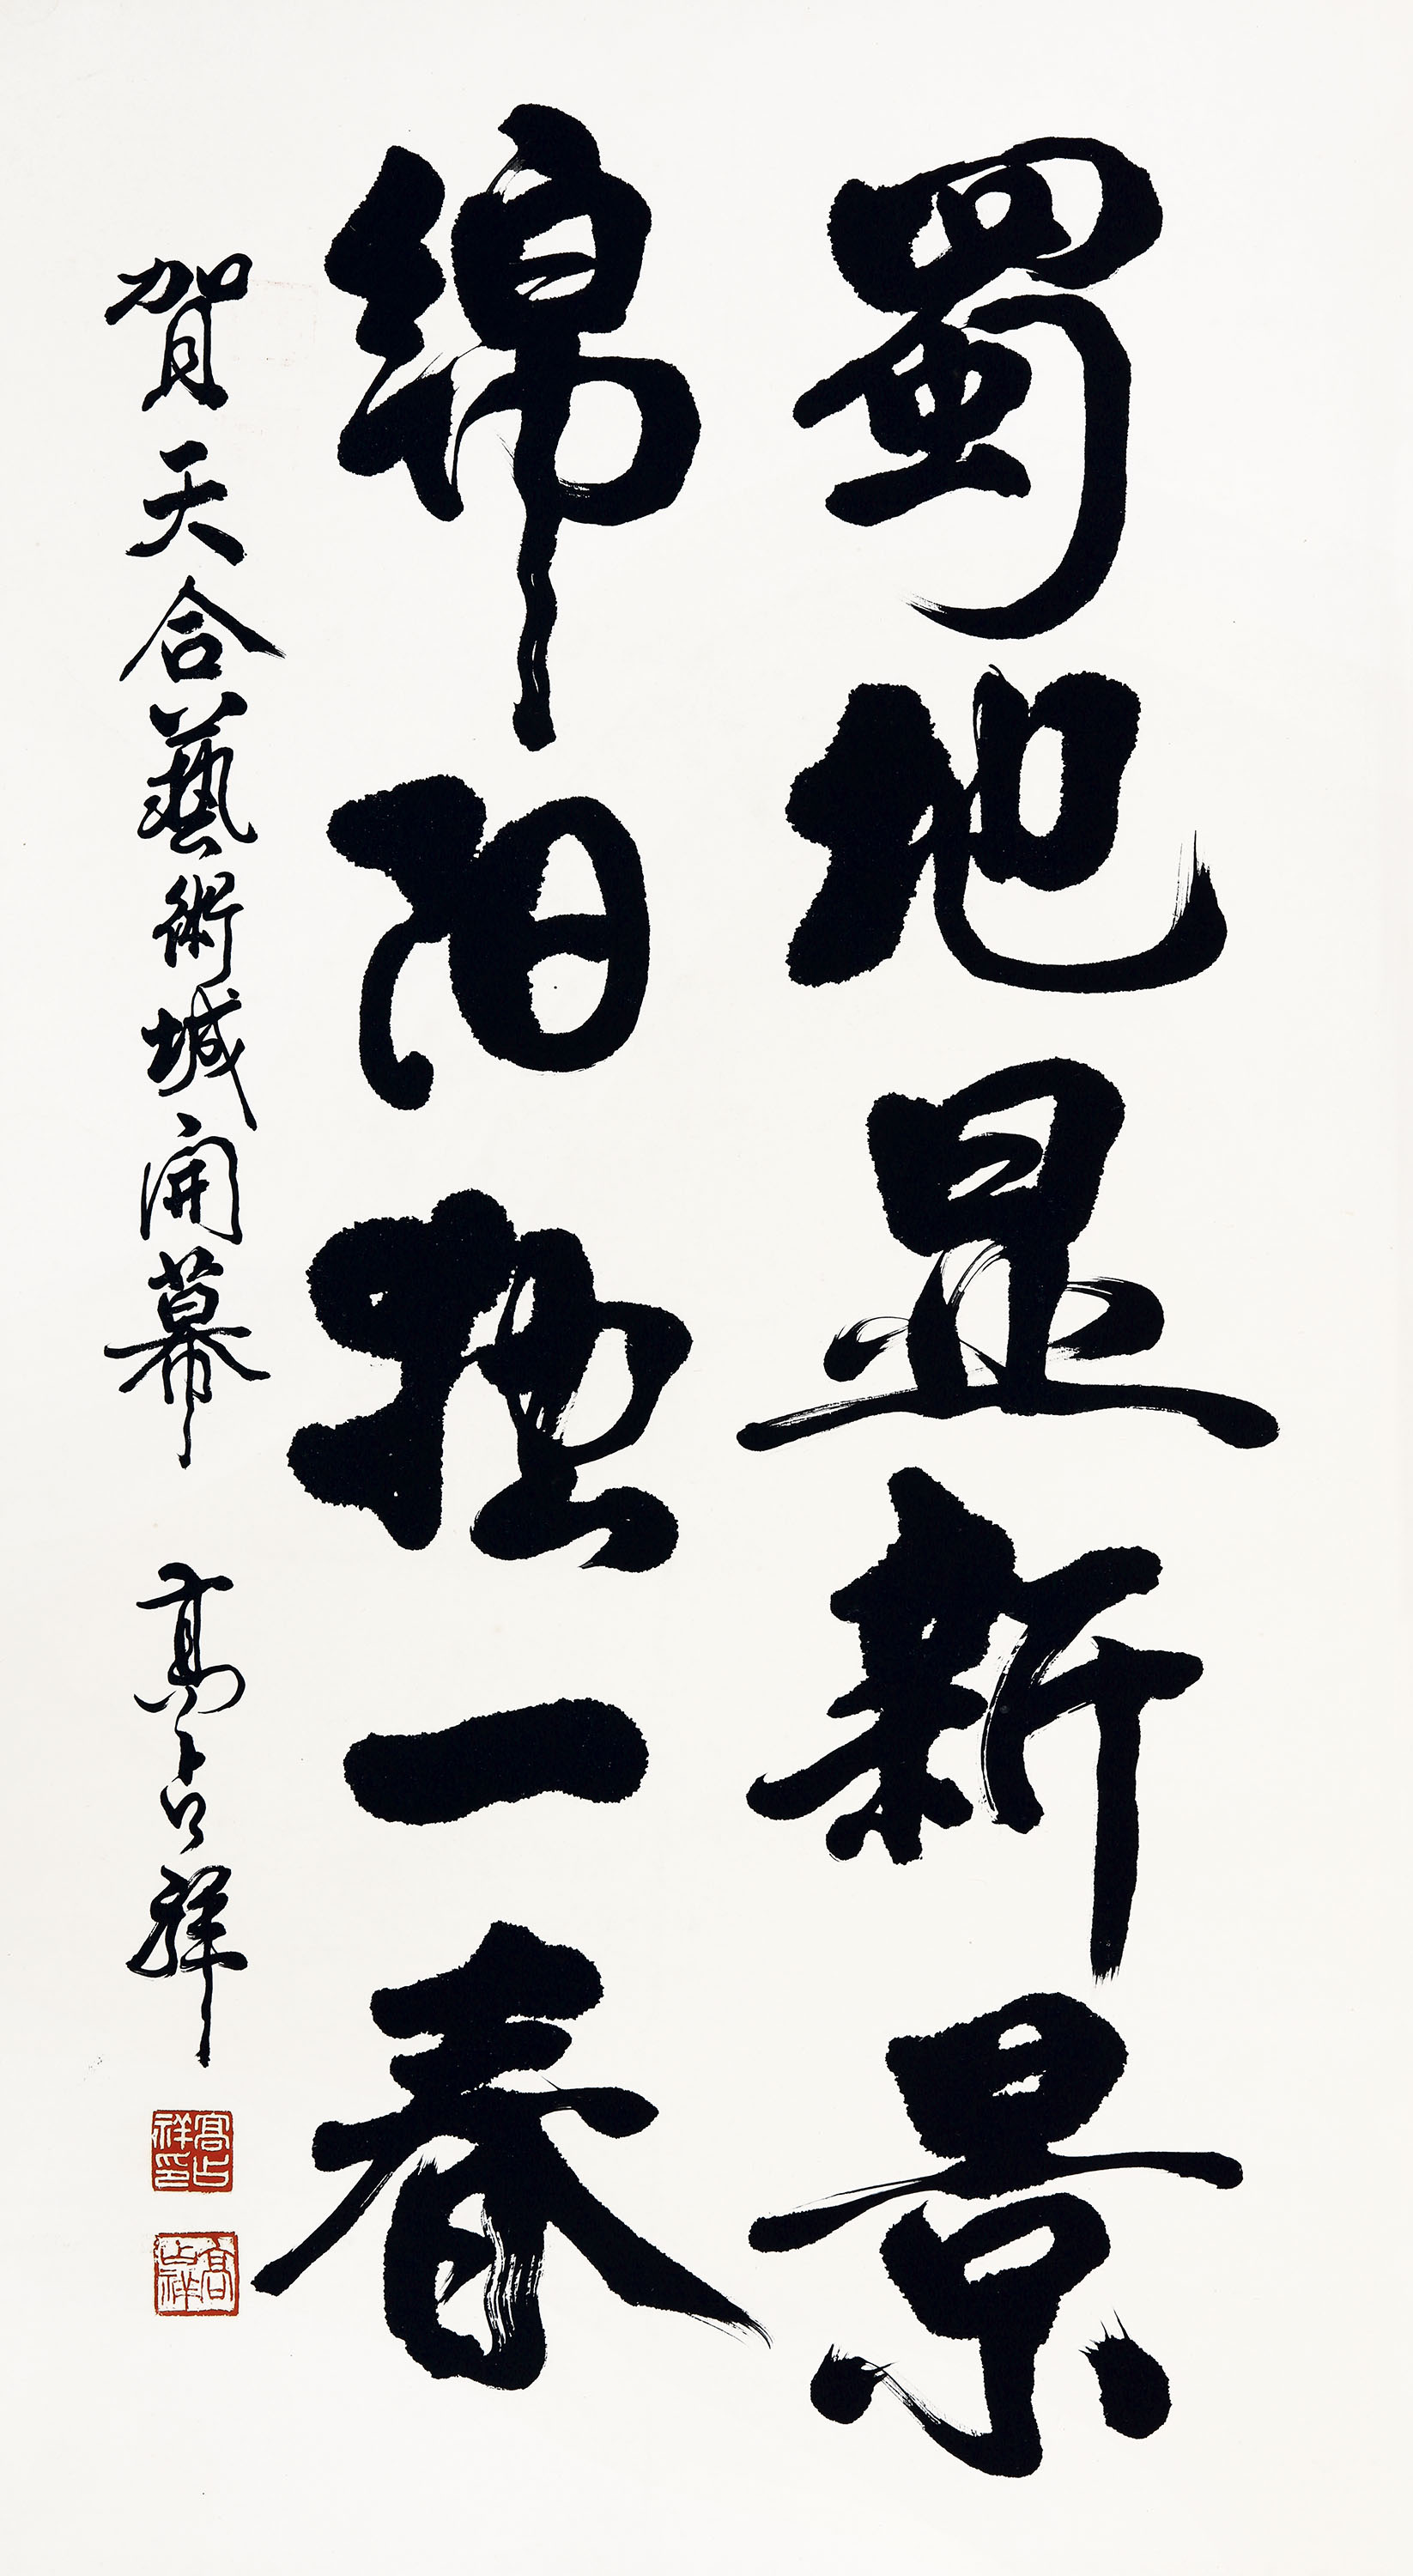 蜀地显新景
绵阳独一春
賀天合藝術城開幕 高占祥
高占祥印
高占祥